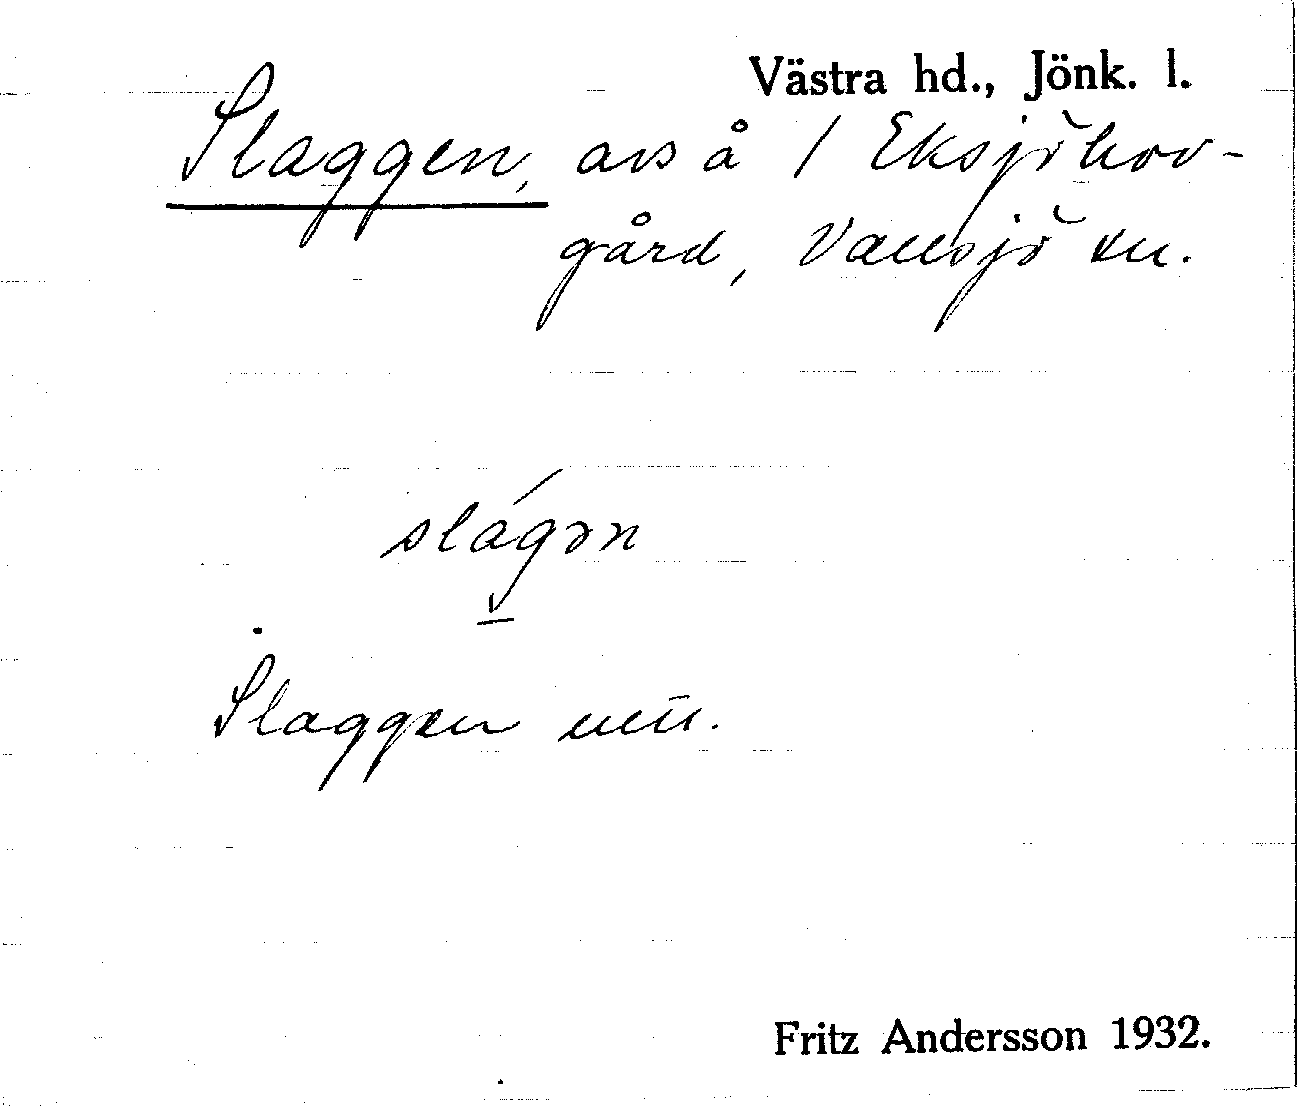 Västra hd., Jönk. l.
Slaggen, avs å / Eksjöhov-
gård, Vallsjö sn.
slágən
Slaggen
Fritz Andersson 1932.